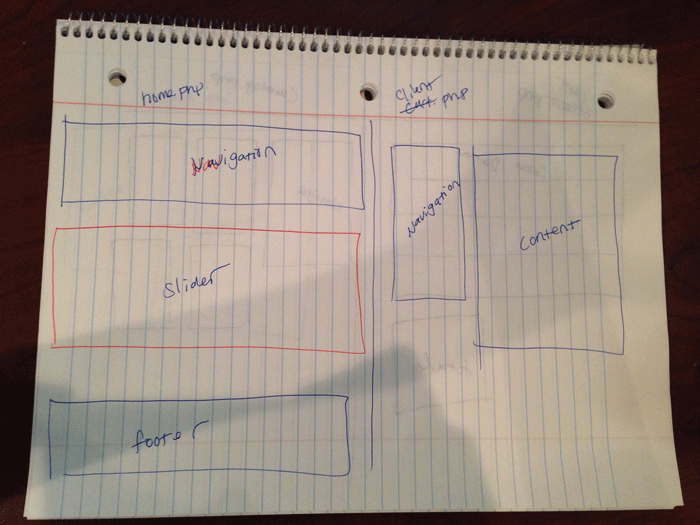 home.php
Navigation
Slider
footer
Client
.php
Navigation
Content